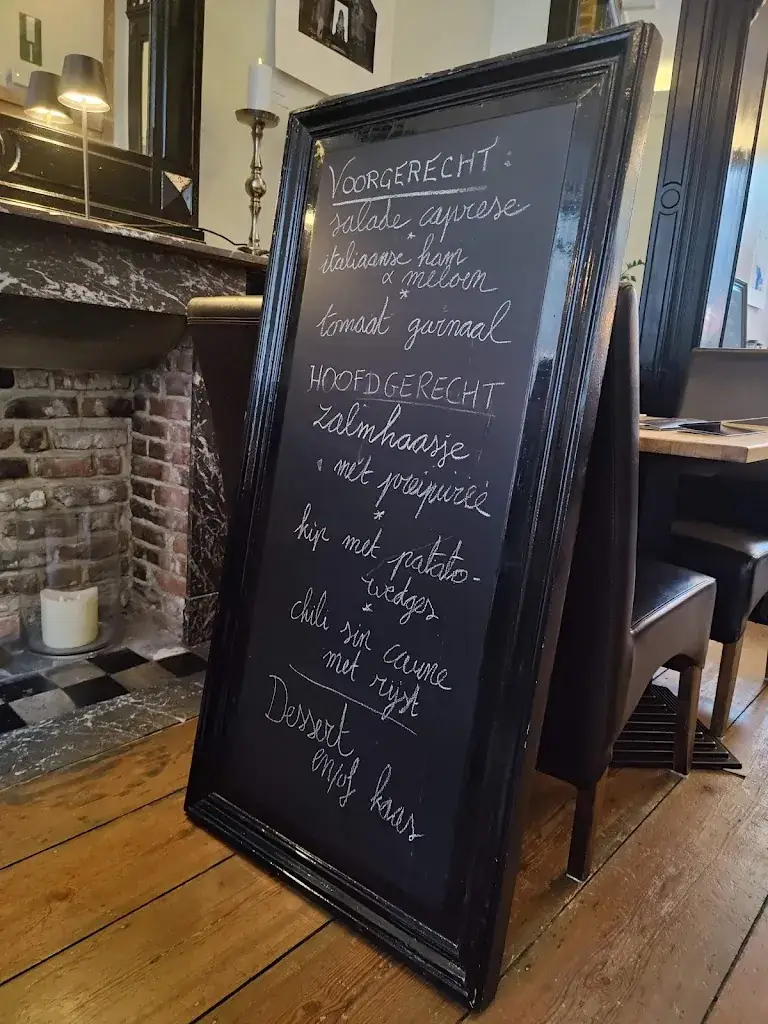 VOORGERECHT:
salade caprese
*
italiaanse ham
& meloen
*
tomaat garnaal
HOOFDGERECHT
zalmhaasje
met preipuréé
*
kip met patato-
wedges
*
chili sin carne
met rijst
Dessert
en/of kaas